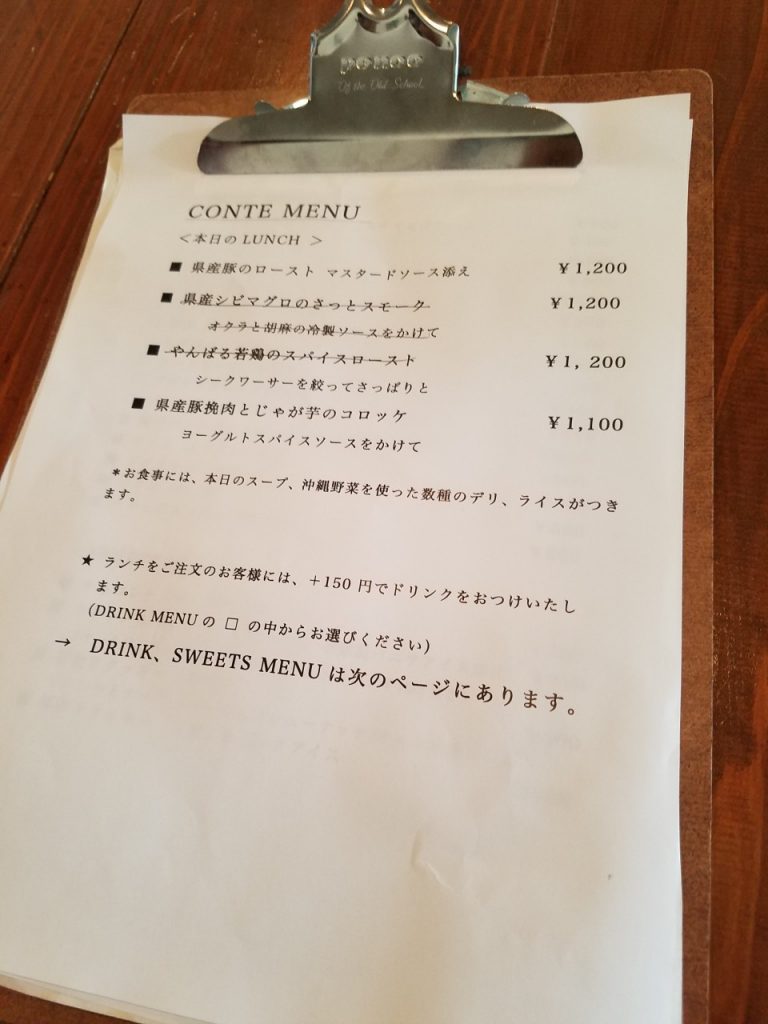 penco
Of the Old School.
CONTE MENU
＜本日の LUNCH ＞
■ 県産豚のロースト マスタードソース添え ￥1,200
■ 県産シビマグロのさっとスモーク ￥1,200
オクラと胡麻の冷製ソースをかけて
■ やんばる若鶏のスパイスロースト ￥1, 200
シークワーサーを絞ってさっぱりと
■ 県産豚挽肉とじゃが芋のコロッケ ￥1,100
ヨーグルトスパイスソースをかけて
＊お食事には、本日のスープ、沖縄野菜を使った数種のデリ、ライスがつき
ます。
★ ランチをご注文のお客様には、＋150 円でドリンクをおつけいたし
ます。
(DRINK MENU の □ の中からお選びください)
→ DRINK、SWEETS MENU は次のページにあります。